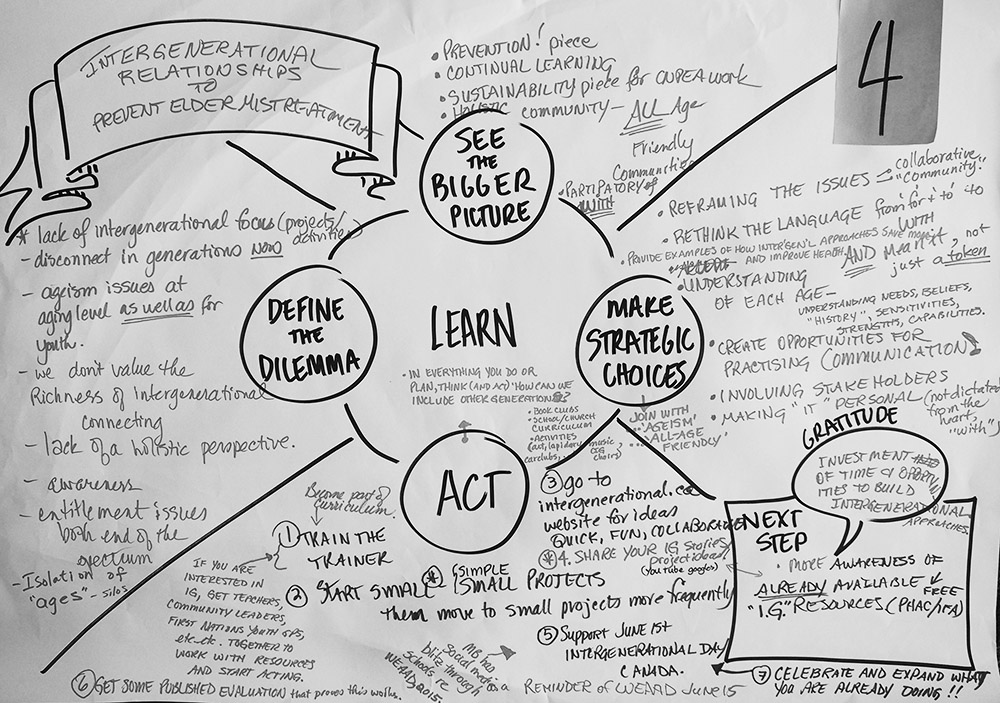 INTERGENERATIONAL
RELATIONSHIPS
TO
PREVENT ELDER MISTREATMENT
4
• PREVENTION! piece
• CONTINUAL LEARNING
• SUSTAINABILITY piece for ONPEA work
• HOLISTIC COMMUNITY - ALL Age
Friendly
Communities
• PARTIPATORY of
WITH
SEE
THE
BIGGER
PICTURE
* lack of intergenerational focus (projects/
activities)
- disconnect in generations NOW
- ageism issues at
aging level as well as for
youth.
- we don't value the
Richness of intergenerational
connecting
- lack of a holistic perspective.
- awareness
- entitlement issues
both end of the
spectrum
- Isolation of
"ages" - silos
DEFINE
THE
DILEMMA
LEARN
• IN EVERYTHING YOU DO OR
PLAN, THINK (AND ACT) "HOW CAN WE
INCLUDE OTHER GENERATIONS?
• BOOK CLUBS
• SCHOOL/CHURCH
CURRICULUM
• ACTIVITIES
(art, lapidary, music
carclubs, choirs)
MAKE
STRATEGIC
CHOICES
• REFRAMING THE ISSUES - collaborative
"community".
• RETHINK THE LANGUAGE from for + to to
WITH
• PROVIDE EXAMPLES OF HOW INTERGEN'L APPROACHES SAVE money
AND IMPROVE HEALTH.
AND mean it, not
just a token
• UNDERSTANDING
OF EACH AGE -
UNDERSTANDING NEEDS, BELIEFS,
"HISTORY", SENSITIVITIES,
STRENGTHS, CAPABILITIES.
• CREATE OPPORTUNITIES FOR
PRACTISING COMMUNICATION
• INVOLVING STAKEHOLDERS
• MAKING "IT" PERSONAL (not dictated
from the
heart,
"with")
JOIN WITH
"AGEISM"
"ALL-AGE
FRIENDLY"
ACT
Become part of
curriculum.
① TRAIN THE
TRAINER
IF YOU ARE
INTERESTED IN
IG, GET TEACHERS,
COMMUNITY LEADERS,
FIRST NATIONS YOUTH GPS,
etc. etc. TOGETHER TO
WORK WITH RESOURCES
AND START ACTING.
② START SMALL * (SIMPLE
SMALL PROJECTS
Them move to small projects more frequently
③ go to
intergenerational.ca
website for ideas
QUICK, FUN, COLLABORATE
*4. SHARE YOUR IG stories
project ideas!
(You tube googles)
⑤ Support JUNE 1st
INTERGENERATIONAL DAY
CANADA.
MB has
Social media
blitz through
Schools re
WEAAD 2015.
REMINDER of WEAAD JUNE 15
⑥ GET SOME PUBLISHED EVALUATION that proves this works.
⑦ CELEBRATE AND EXPAND WHAT
YOU ARE ALREADY DOING!!
GRATITUDE
INVESTMENT
OF TIME & OPPORTUN
ITIES TO BUILD
INTERGENERATIONAL
APPROACHES.
NEXT
STEP
• MORE AWARENESS OF
ALREADY AVAILABLE FREE
"I.G." RESOURCES (PHAC/IFA)